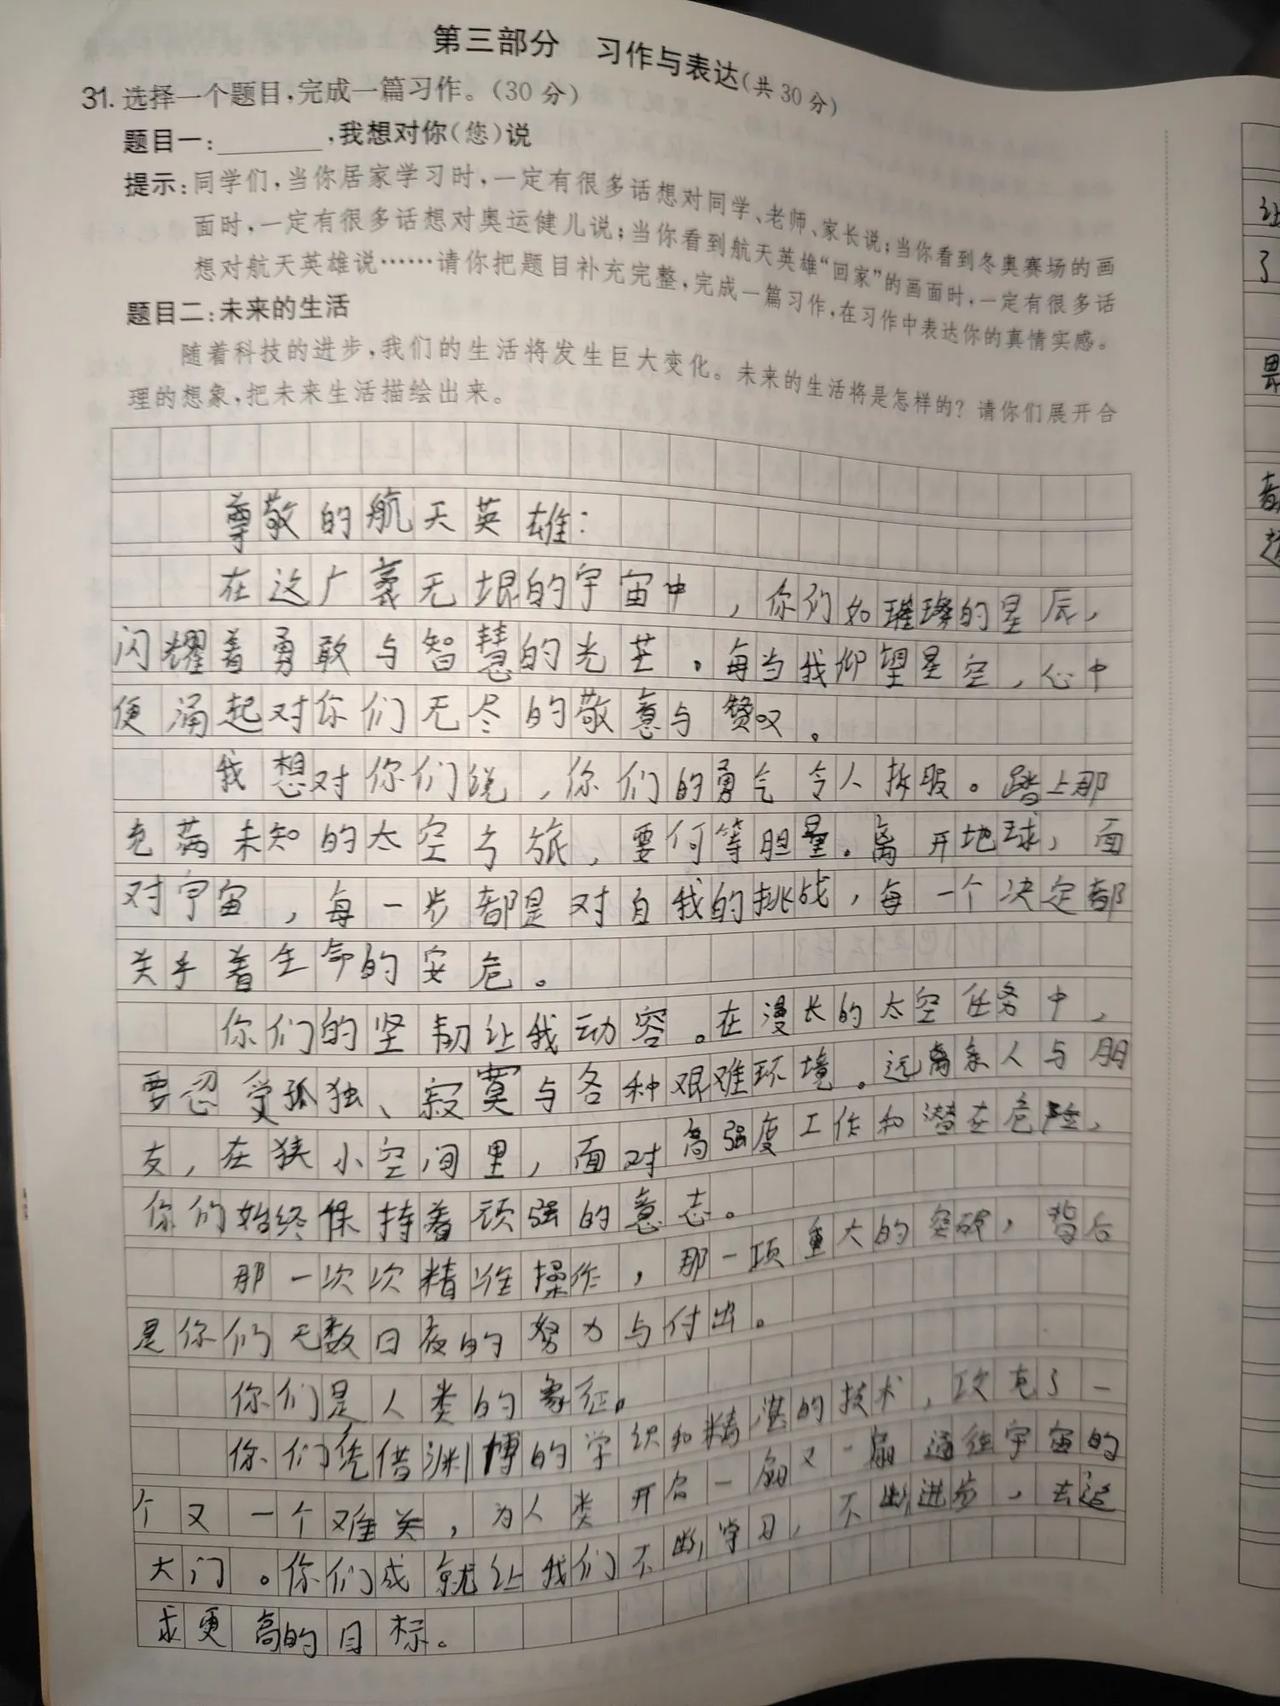 第三部分 习作与表达(共30分)
31. 选择一个题目,完成一篇习作。(30分)
题目一:________,我想对你(您)说
提示:同学们,当你居家学习时,一定有很多话想对同学、老师、家长说;当你看到冬奥赛场的画
面时,一定有很多话想对奥运健儿说;当你看到航天英雄“回家”的画面时,一定有很多话
想对航天英雄说……请你把题目补充完整,完成一篇习作,在习作中表达你的真情实感。
题目二:未来的生活
随着科技的进步,我们的生活将发生巨大变化。未来的生活将是怎样的?请你们展开合
理的想象,把未来生活描绘出来。
尊敬的航天英雄:
在这广袤无垠的宇宙中,你们如璀璨的星辰,
闪耀着勇敢与智慧的光芒。每当我仰望星空,心中
便涌起对你们无尽的敬意与赞叹。
我想对你们说,你们的勇气令人拆服。踏上那
充满未知的太空之旅,要何等胆量。离开地球,面
对宇宙,每一步都是对自我的挑战,每一个决定都
关乎着生命的安危。
你们的坚韧让我动容。在漫长的太空任务中,
要忍受孤独、寂寞与各种艰难环境。远离亲人与朋
友,在狭小空间里,面对高强度工作和潜在危险,
你们始终保持着顽强的意志。
那一次次精准操作,那一项重大的突破,背后
是你们无数日夜的努力与付出。
你们是人类的象征。
你们凭借渊博的学识和精湛的技术,攻克了一
个又一个难关,为人类开启一扇又一扇通往宇宙的
大门。你们成就让我们不断学习,不断进步,去追
求更高的目标。